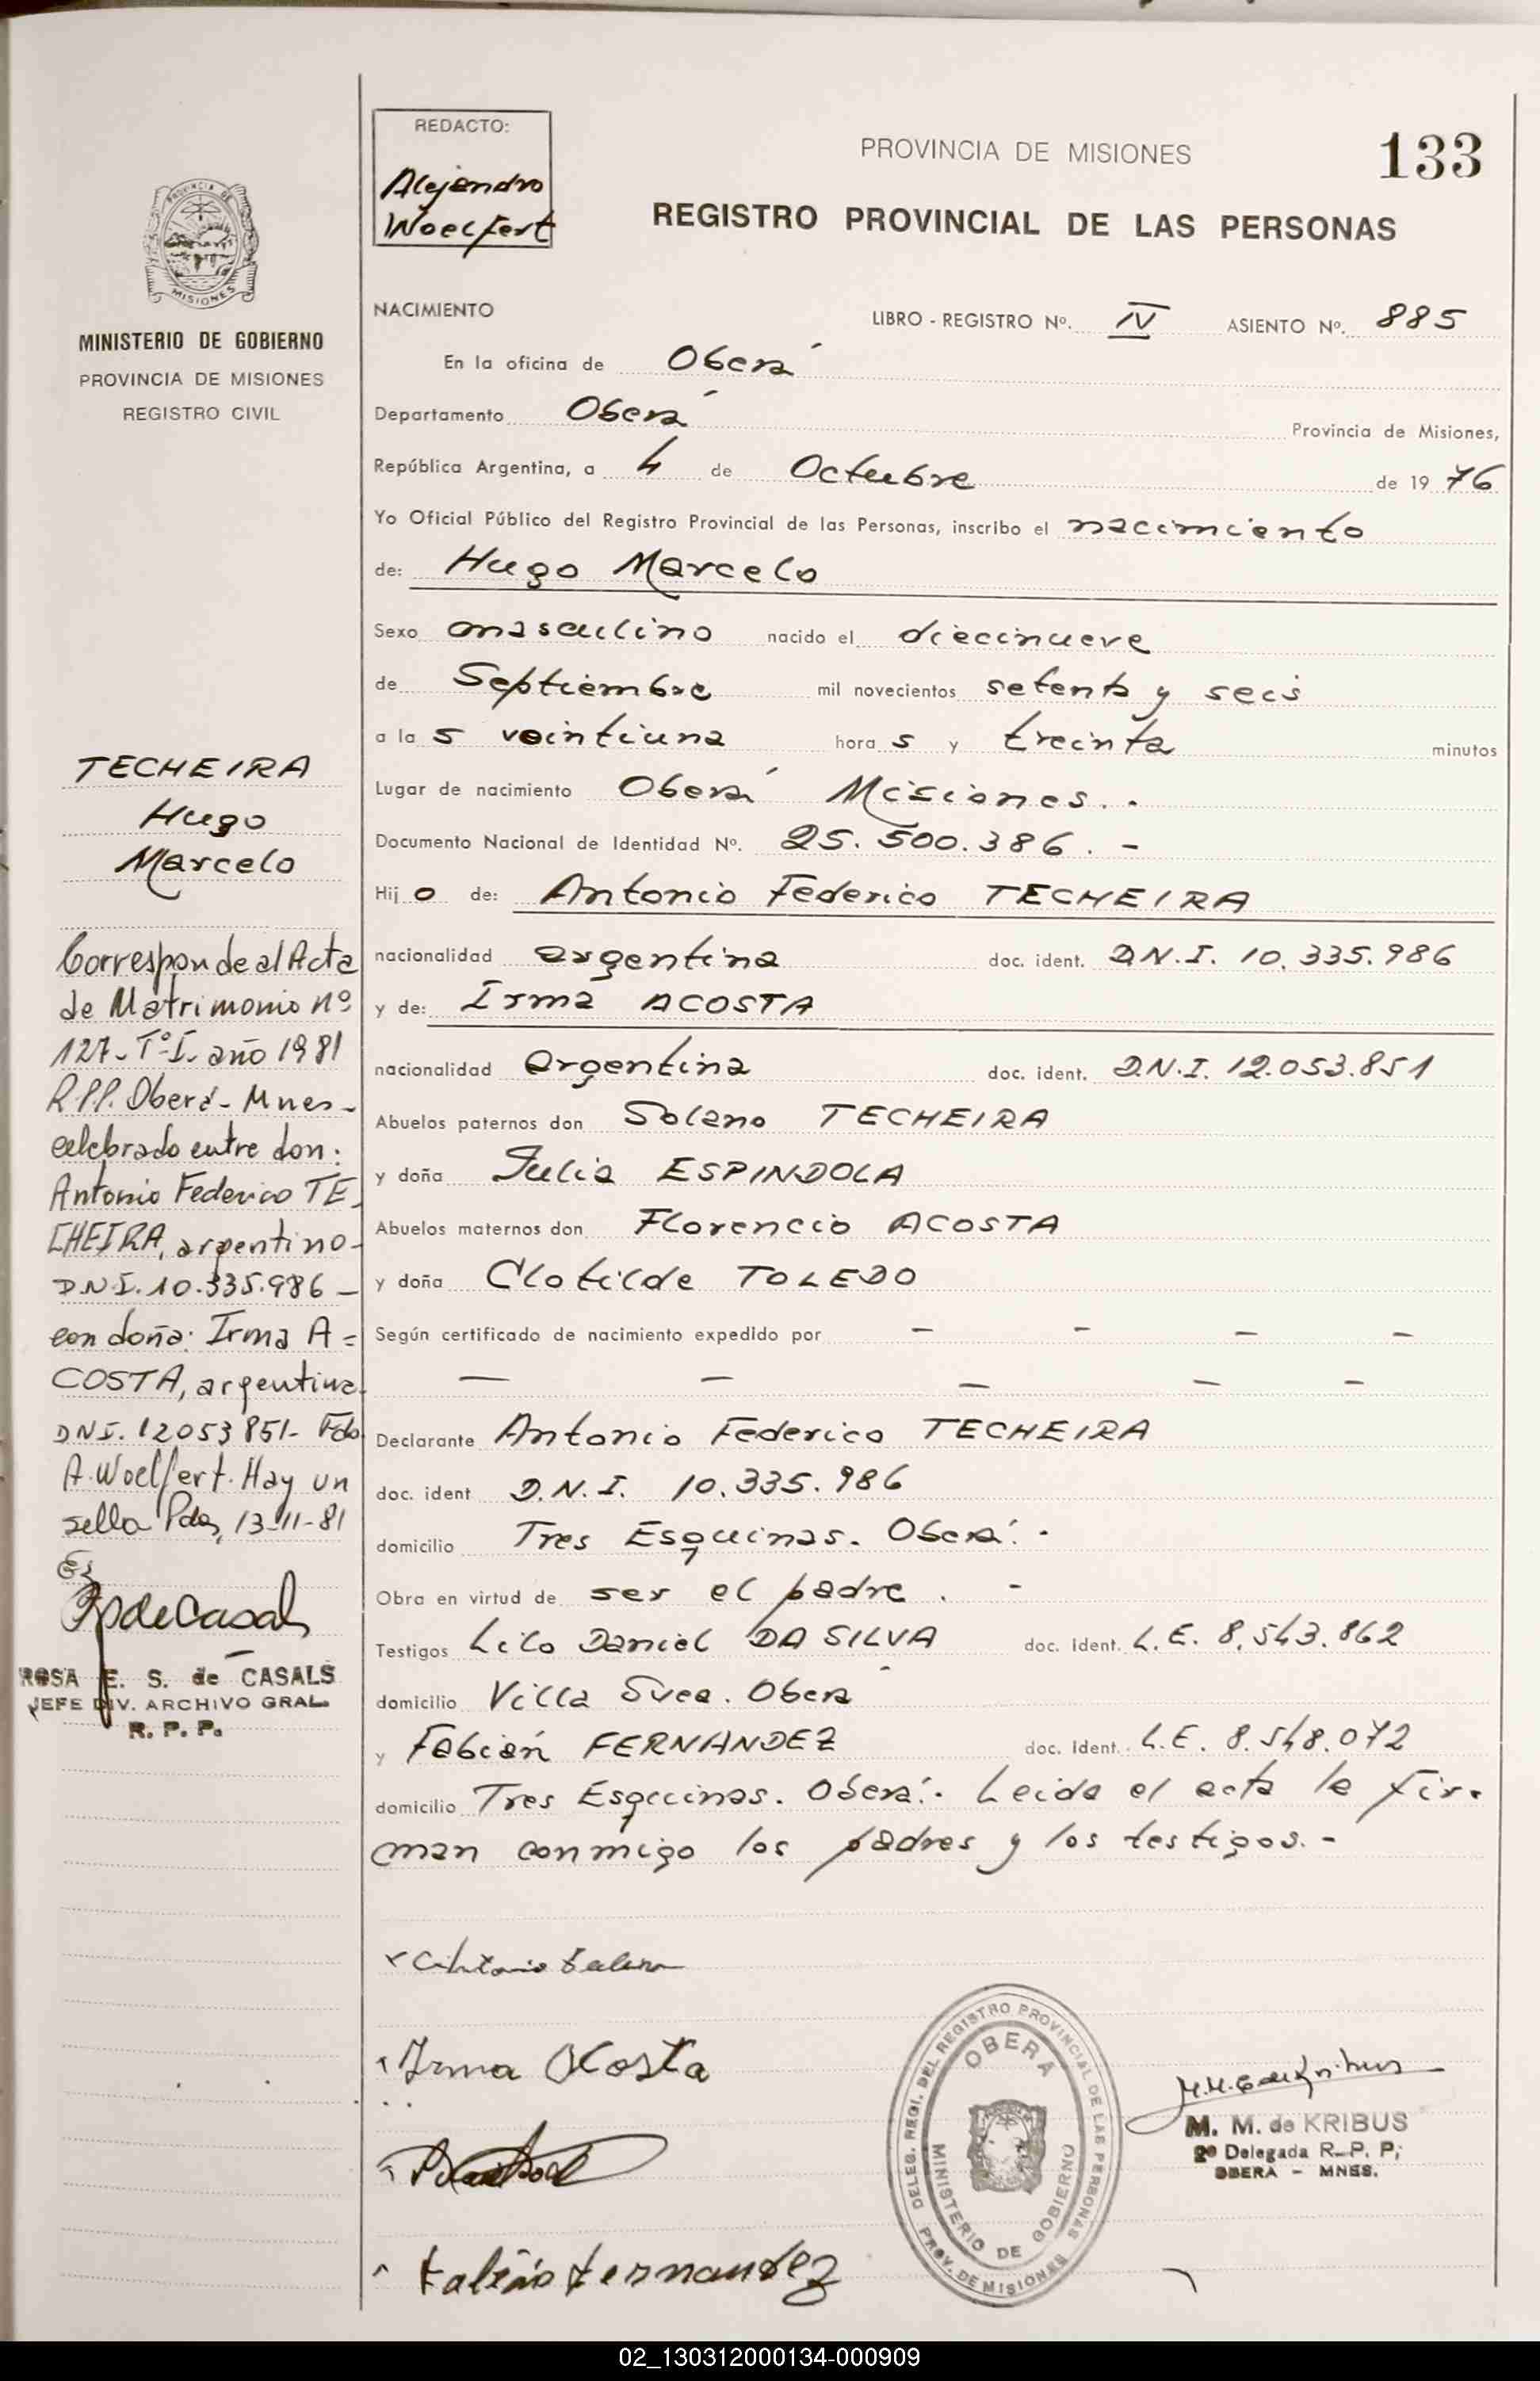 REDACTO:
Alejandro
Woelfert
PROVINCIA DE MISIONES
133
REGISTRO PROVINCIAL DE LAS PERSONAS
PROVINCIA DE
MISIONES
MINISTERIO DE GOBIERNO
PROVINCIA DE MISIONES
REGISTRO CIVIL
NACIMIENTO
LIBRO - REGISTRO Nº. IV ASIENTO Nº. 885
En la oficina de Oberá
Departamento Oberá Provincia de Misiones,
República Argentina, a 4 de Octubre de 19 76
Yo Oficial Público del Registro Provincial de las Personas, inscribo el nacimiento
de: Hugo Marcelo
Sexo masculino nacido el diecinueve
de Septiembre mil novecientos setenta y seis
a la s veintiuna hora s y treinta minutos
Lugar de nacimiento Oberá Misiones. -
Documento Nacional de Identidad Nº. 25.500.386. -
Hij o de: Antonio Federico TECHEIRA
nacionalidad argentina doc. ident. D.N.I. 10.335.986
y de: Irma ACOSTA
nacionalidad argentina doc. ident. D.N.I. 12.053.851
Abuelos paternos don Solano TECHEIRA
y doña Julia ESPINDOLA
Abuelos maternos don Florencio ACOSTA
y doña Clotilde TOLEDO
Según certificado de nacimiento expedido por - - - -
- - - - -
Declarante Antonio Federico TECHEIRA
doc. ident D.N.I. 10.335.986
domicilio Tres Esquinas. Oberá. -
Obra en virtud de ser el padre. -
Testigos Lilo Daniel DA SILVA doc. ident. L.E. 8.543.862
domicilio Villa Svea. Oberá
y Fabián FERNANDEZ doc. ident. L.E. 8.548.072
domicilio Tres Esquinas. Oberá. - Leida el acta la fir-
man conmigo los padres y los testigos. -
TECHEIRA
Hugo
Marcelo
Corresponde al Acta
de Matrimonio nº
127- Tº-I- año 1981
R.P.P. Oberá- Mnes-
celebrado entre don:
Antonio Federico TE-
CHEIRA, argentino-
D.N.I. 10.335.986 -
con doña: Irma A=
COSTA, argentina-
DNI. 12053851- Fdo
A. Woelfert. Hay un
sello Pdas, 13-11-81
ROSA E. S. de CASALS
JEFE DIV. ARCHIVO GRAL.
R. P. P.
Irma Acosta
Fabián Fernandez
DELEG. REGI. DEL REGISTRO PROVINCIAL DE LAS PERSONAS
OBERA
MINISTERIO DE GOBIERNO
PROV. DE MISIONES
M. M. de KRIBUS
2º Delegada R. P. P.
OBERA - MNES.
02_130312000134-000909